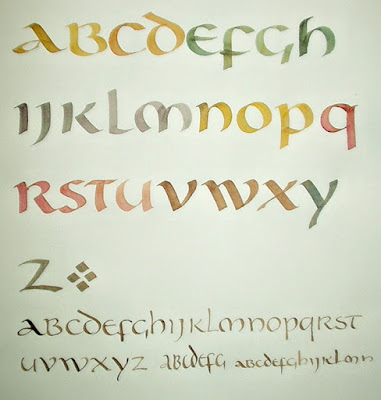 abcdefgh
ijklmnopq
rstuvwxy
z
abcdefghijklmnopqrst
uvwxyz abcdefg abcdefghijklmn